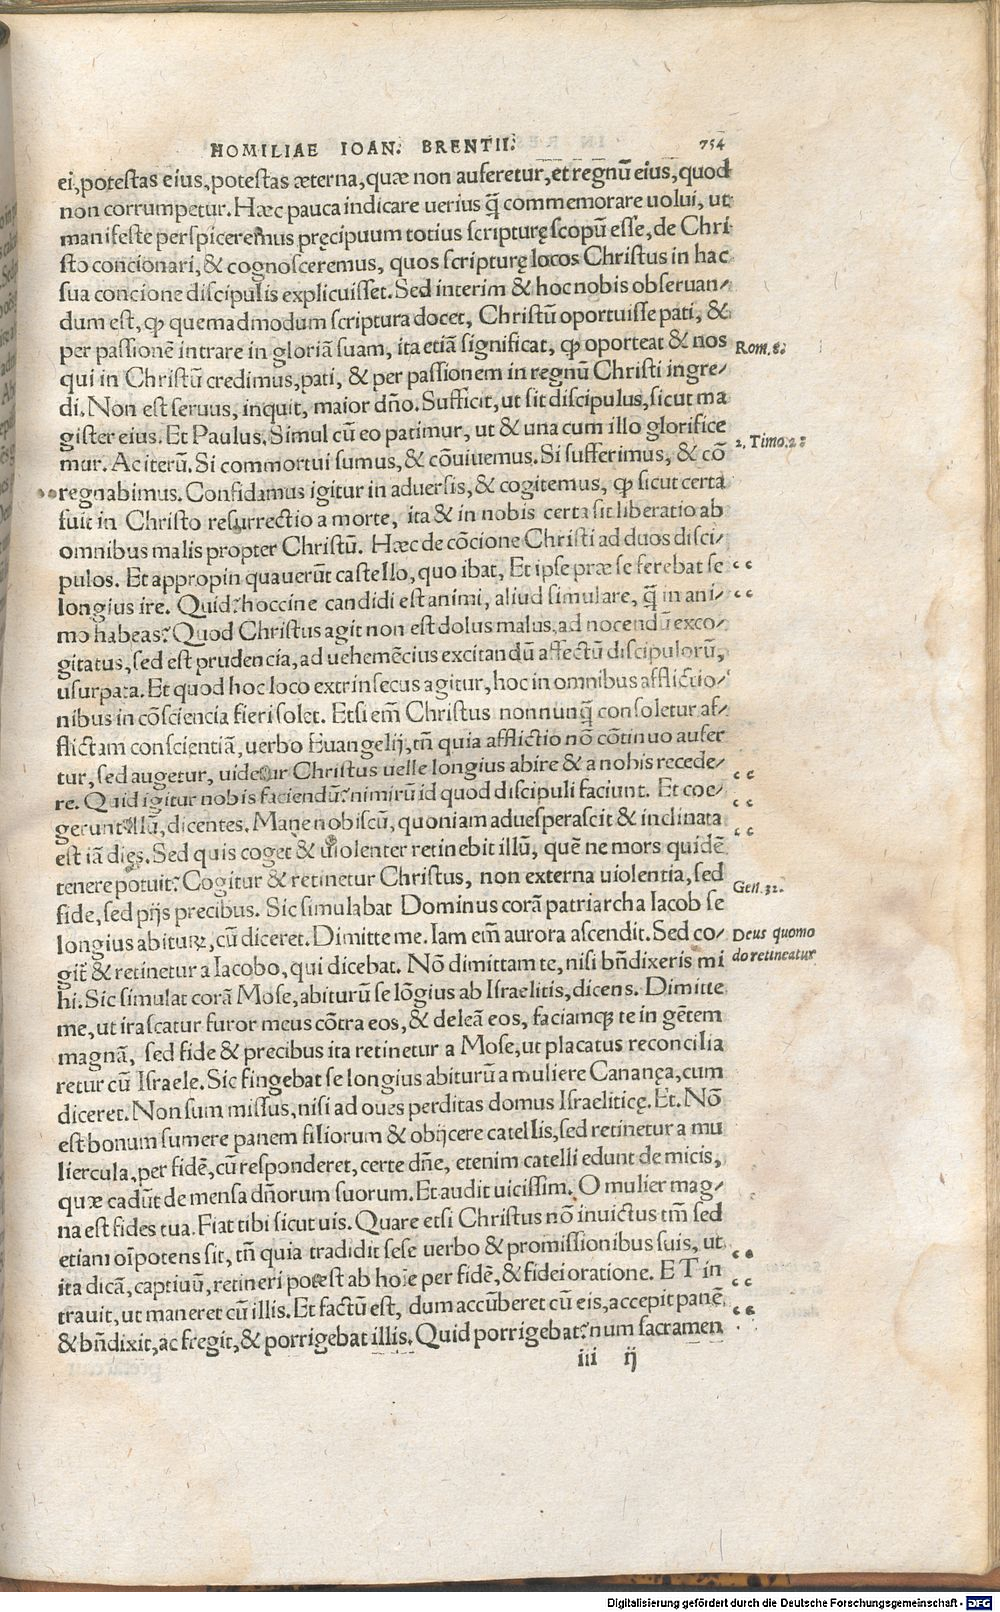 HOMILIAE IOAN. BRENTII. 754
ei, potestas eius, potestas æterna, quæ non auferetur, et regnū eius, quod
non corrumpetur. Hæc pauca indicare uerius q̃ commemorare uolui, ut
manifeste perspiceremus pręcipuum totius scripturę scopū esse, de Chri
sto concionari, & cognosceremus, quos scripturę locos Christus in hac
sua concione discipulis explicuisset. Sed interim & hoc nobis obseruan/
dum est, ꝙ quemadmodum scriptura docet, Christū oportuisse pati, &
per passionē intrare in gloriā suam, ita etiā significat, ꝙ oporteat & nos
Rom. 8.
qui in Christū credimus, pati, & per passionem in regnū Christi ingre/
di. Non est seruus, inquit, maior dño. Sufficit, ut sit discipulus, sicut ma
gister eius. Et Paulus. Simul cū eo patimur, ut & una cum illo glorifice
2. Timo. 2.
mur. Ac iterū. Si commortui sumus, & cōuiuemus. Si sufferimus, & cō
regnabimus. Confidamus igitur in aduersis, & cogitemus, ꝙ sicut certa
fuit in Christo resurrectio a morte, ita & in nobis certa sit liberatio ab
omnibus malis propter Christū. Hæc de cōcione Christi ad duos disci/
pulos. Et appropin quauerūt castello, quo ibat, Et ipse præ se ferebat se
longius ire. Quid? hoccine candidi est animi, aliud simulare, q̃ in ani/
mo habeas? Quod Christus agit non est dolus malus, ad nocendū exco/
gitatus, sed est prudencia, ad uehemēcius excitandū affectū discipulorū,
usurpata. Et quod hoc loco extrinsecus agitur, hoc in omnibus afflictio/
nibus in cōsciencia fieri solet. Etsi em̄ Christus nonnunq̃ consoletur af/
flictam conscientiā, uerbo Euangelij, tñ quia afflictio nō cōtinuo aufer
tur, sed augetur, uidetur Christus uelle longius abire & a nobis recede/
re. Quid igitur nobis faciendū? nimirū id quod discipuli faciunt. Et coe/
gerunt illū, dicentes. Mane nobiscū, quoniam aduesperascit & inclinata
est iā dies. Sed quis coget & uiolenter retinebit illū, quē ne mors quidē
tenere potuit? Cogitur & retinetur Christus, non externa uiolentia, sed
Gen. 32.
fide, sed pijs precibus. Sic simulabat Dominus corā patriarcha Iacob se
longius abiturꝝ, cū diceret. Dimitte me. Iam em̄ aurora ascendit. Sed co/
Deus quomo
do retineatur
git̃ & retinetur a Iacobo, qui dicebat. Nō dimittam te, nisi bñdixeris mi
hi. Sic simulat corā Mose, abiturū se lōgius ab Israelitis, dicens. Dimitte
me, ut irascatur furor meus cōtra eos, & deleā eos, faciamqꝫ te in gētem
magnā, sed fide & precibus ita retinetur a Mose, ut placatus reconcilia
retur cū Israele. Sic fingebat se longius abiturū a muliere Cananęa, cum
diceret. Non sum missus, nisi ad oues perditas domus Israeliticę. Et. Nō
est bonum sumere panem filiorum & obijcere catellis, sed retinetur a mu
liercula, per fidē, cū responderet, certe dñe, etenim catelli edunt de micis,
quæ cadūt de mensa dñorum suorum. Et audit uicissim. O mulier mag/
na est fides tua. Fiat tibi sicut uis. Quare etsi Christus nō inuictus tm̄ sed
etiam oīpotens sit, tñ quia tradidit sese uerbo & promissionibus suis, ut
ita dicā, captiuū, retineri potest ab hoīe per fidē, & fidei oratione. ET in
trauit, ut maneret cū illis. Et factū est, dum accūberet cū eis, accepit panē,
& bñdixit, ac fregit, & porrigebat illis. Quid porrigebat? num sacramen
iii ij
Digitalisierung gefördert durch die Deutsche Forschungsgemeinschaft - DFG